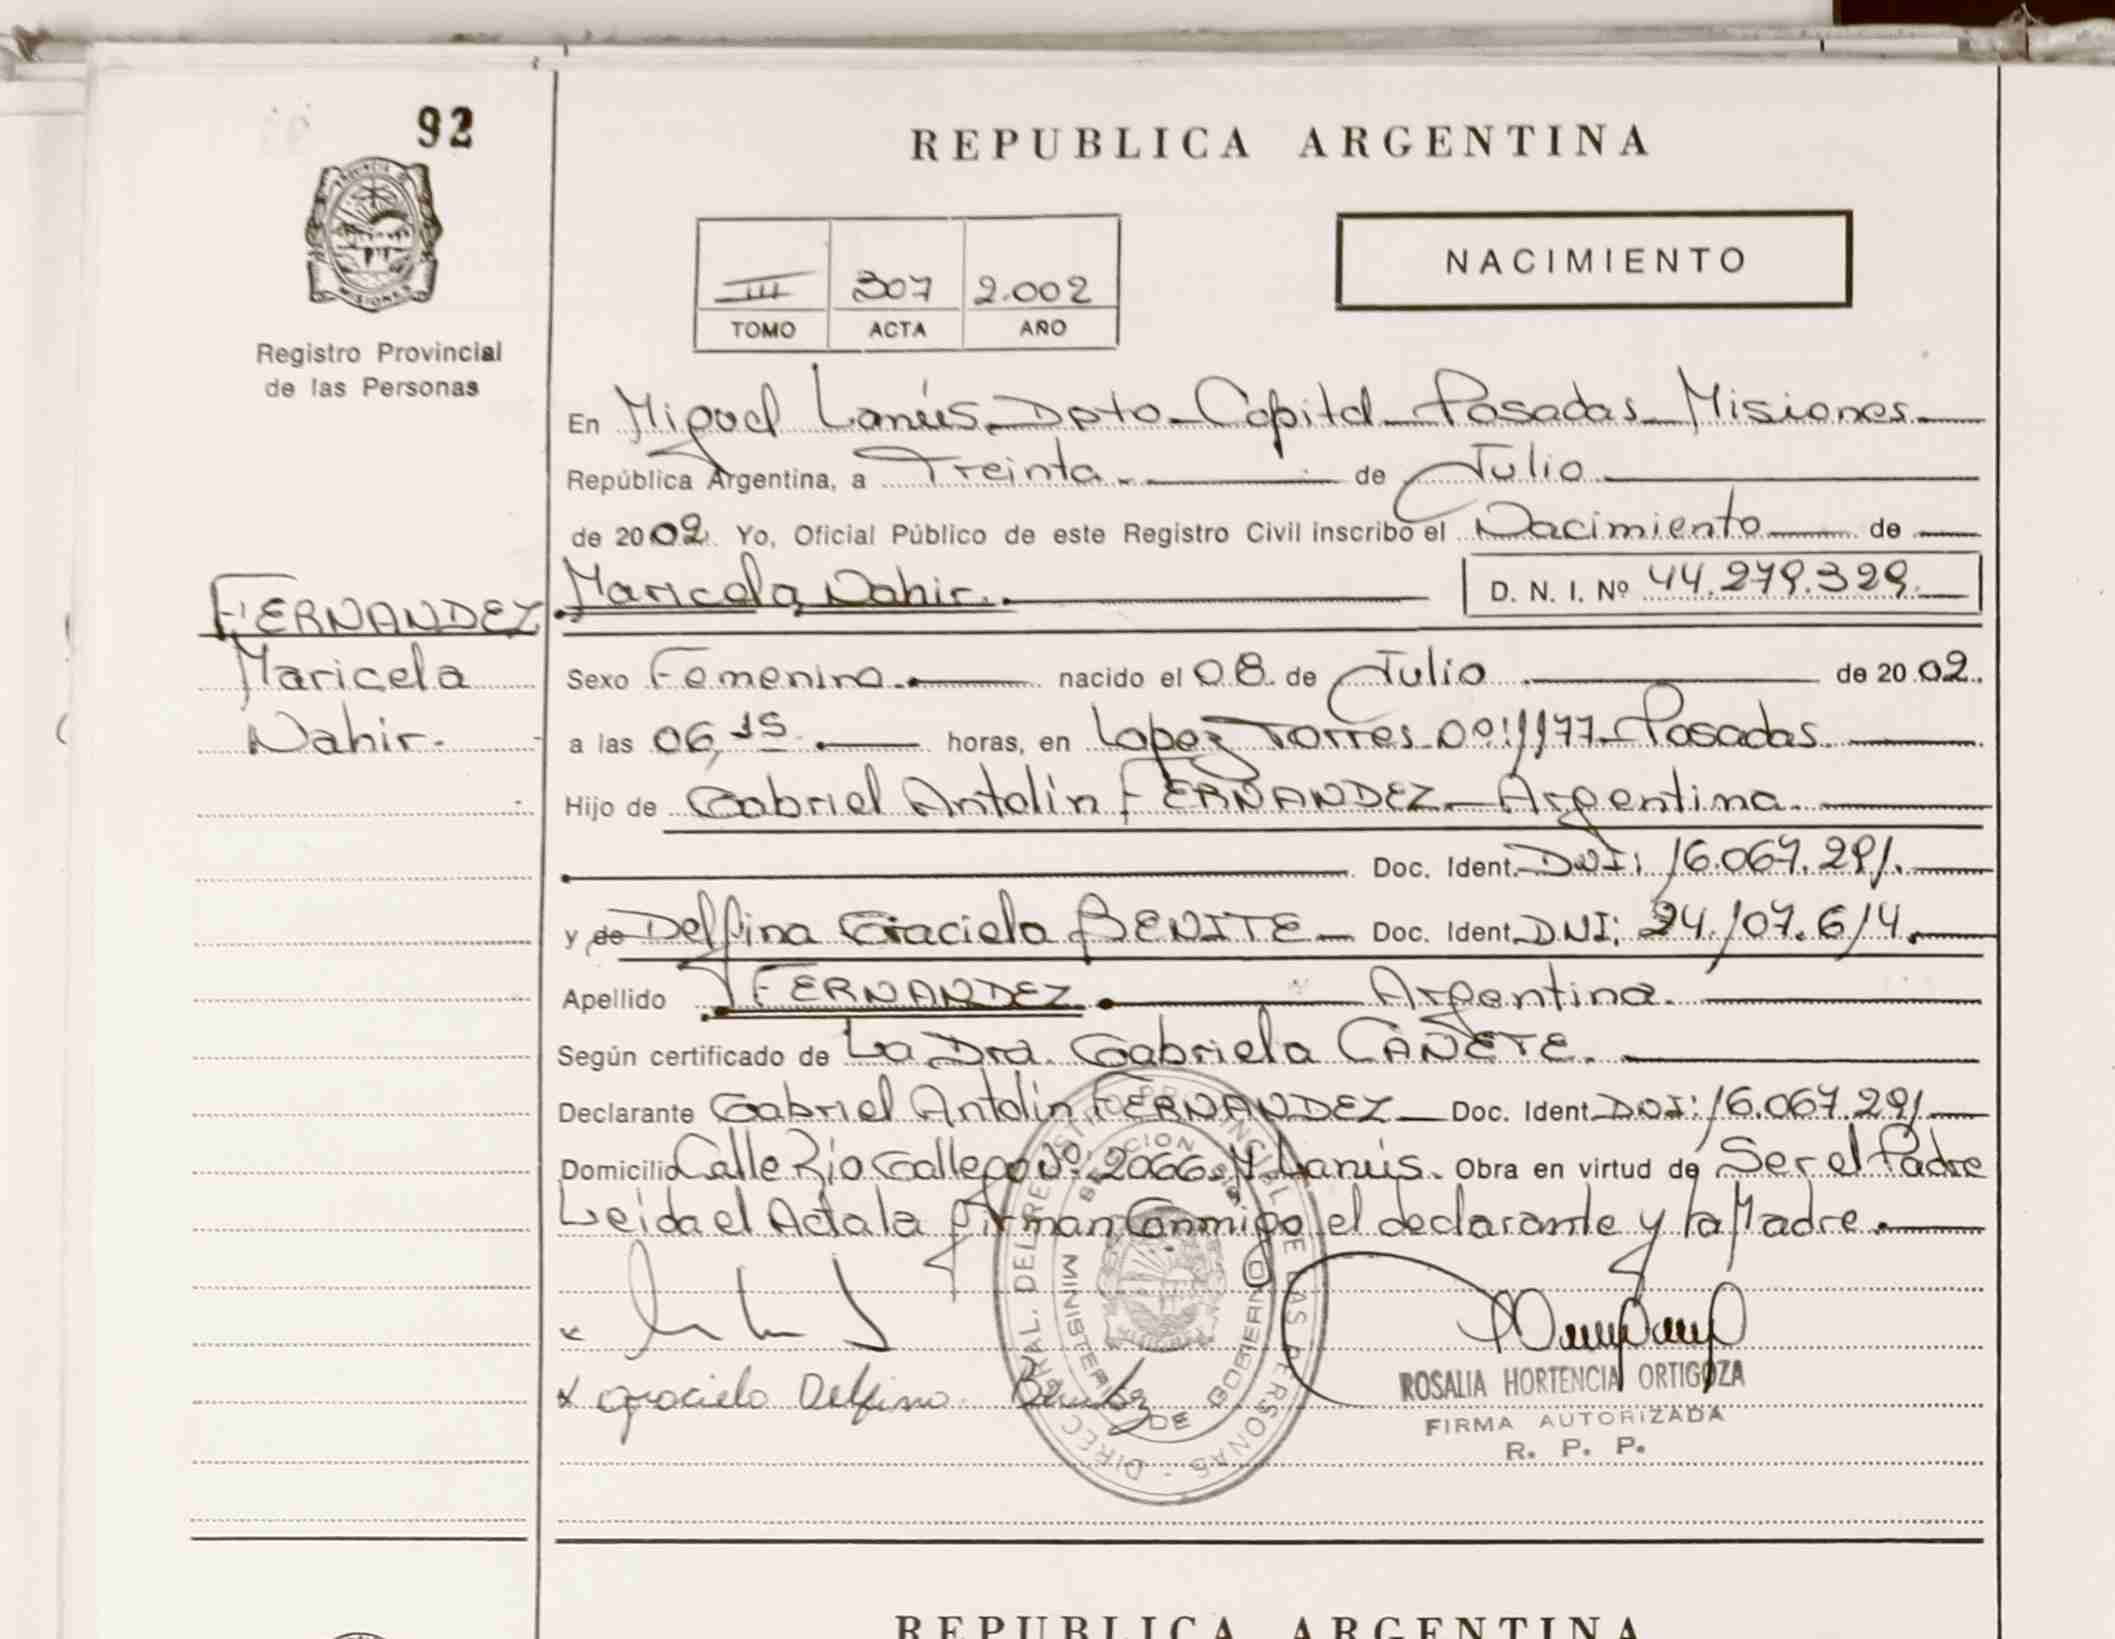 92
REPUBLICA ARGENTINA
PROVINCIA DE MISIONES
Registro Provincial
de las Personas
III 307 2.002
TOMO ACTA AÑO
NACIMIENTO
En Miguel Lanús Dpto Capital Posadas Misiones
República Argentina, a Treinta de Julio
de 2002. Yo, Oficial Público de este Registro Civil inscribo el Nacimiento de
Maricela Nahir. D. N. I. Nº 44.279.329.
FERNANDEZ
Maricela
Nahir.
Sexo Femenino. nacido el 08 de Julio de 2002.
a las 06,15 horas, en Lopez Torres 1177 Posadas.
Hijo de Gabriel Antolín FERNANDEZ Argentina.
Doc. Ident. DNI: 16.067.291.
y de Delfina Graciela BENITE Doc. Ident. DNI: 24.107.614.
Apellido FERNANDEZ Argentina.
Según certificado de La Dra. Gabriela CAÑETE.
Declarante Gabriel Antolín FERNANDEZ Doc. Ident. DNI: 16.067.291
Domicilio Calle Río Gallego Nº 2066. M Lanús. Obra en virtud de Ser el Padre
Leida el Acta la firman Conmigo el declarante y la Madre.
x
x Graciela Delfina Benitez
DIREC. GRAL. DEL REGISTRO PROVINCIAL DE LAS PERSONAS
MINISTERIO DE GOBIERNO
ROSALIA HORTENCIA ORTIGOZA
FIRMA AUTORIZADA
R. P. P.
REPUBLICA ARGENTINA